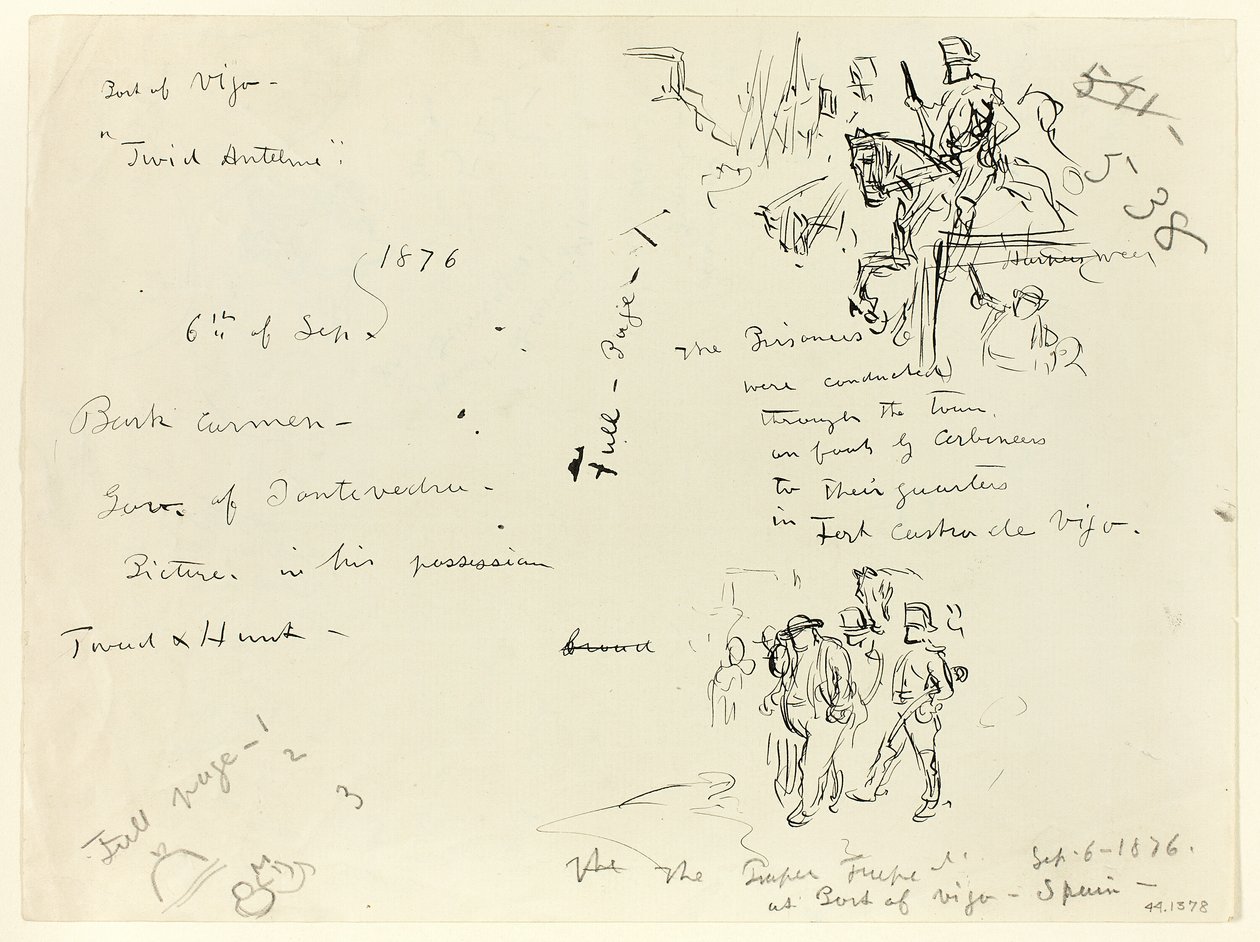 Port of Vigo -
"Twid Antelme":
1876
6th of Sep.
Bark Carmen -
Gov. of Pontevedra -
Picture. in his possession
Tweed & Hunt -
Full page - 1
2
3
Full - Page - 1
541 -
5-38
Harpers Week
The Prisoners
were conducted
through the town,
on foot by Carbineers
to their quarters
in Fort Castro de Vigo.
broad
the The
Sep. 6 - 1876.
at Port of Vigo - Spain -
44.1378